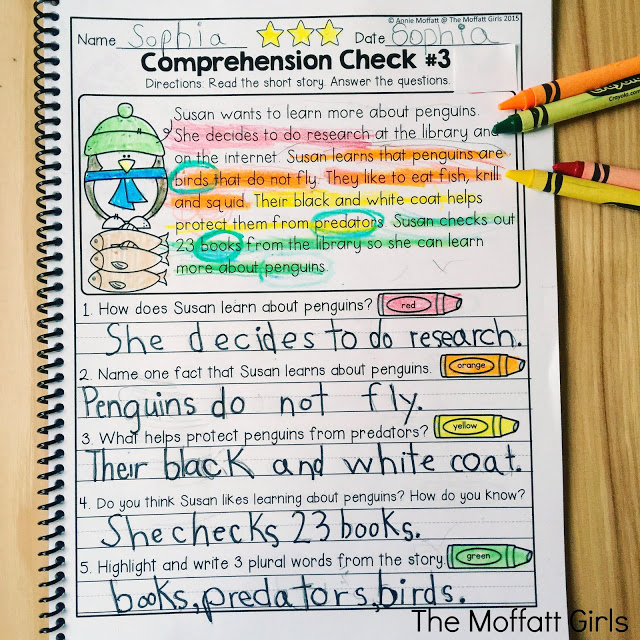 © Annie Moffatt @ The Moffatt Girls 2015
Name Sophia Date Sophia
Comprehension Check #3
Directions: Read the short story. Answer the questions.
Susan wants to learn more about penguins.
She decides to do research at the library and
on the internet. Susan learns that penguins are
birds that do not fly. They like to eat fish, krill
and squid. Their black and white coat helps
protect them from predators. Susan checks out
23 books from the library so she can learn
more about penguins.
1. How does Susan learn about penguins? red
She decides to do research.
2. Name one fact that Susan learns about penguins. orange
Penguins do not fly.
3. What helps protect penguins from predators? yellow
Their black and white coat.
4. Do you think Susan likes learning about penguins? How do you know?
She checks 23 books.
5. Highlight and write 3 plural words from the story. green
books, predators, birds.
The Moffatt Girls